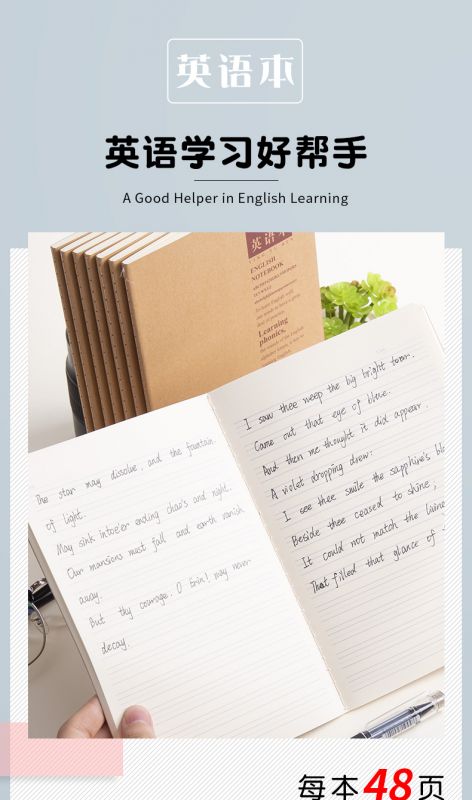 英语本
英语学习好帮手
A Good Helper in English Learning
英语本
ENGLISH
NOTEBOOK
Learning
phonics.
The star may dissolve, and the fountain
of light.
May sink into'er ending chao's and night.
Our mansions must fall and earth vanish
away.
But thy courage. O Erin! may never
decay.
I saw thee weep the big bright tear.
Came out that eye of blue.
And then me thought it did appear.
A violet dropping drew:
I see thee smile the sapphire's bl
Beside thee ceased to shine;
It could not match the living
That filled that glance of
每本48页